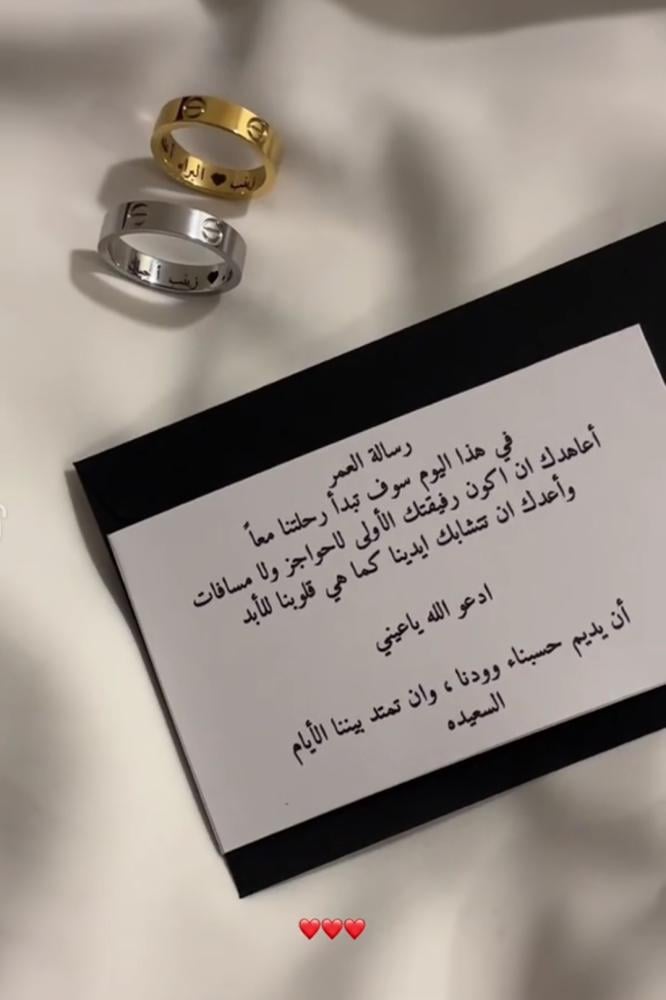 زينب ♥ البراء
زينب أحبك
رسالة العمر
في هذا اليوم سوف تبدأ رحلتنا معاً
أعاهدك ان اكون رفيقتك الأولى لاحواجز ولا مسافات
وأعدك ان تتشابك ايدينا كما هي قلوبنا للأبد
ادعو الله ياعيني
أن يديم حسبناء وودنا ، وان تمتد بيننا الأيام
السعيده